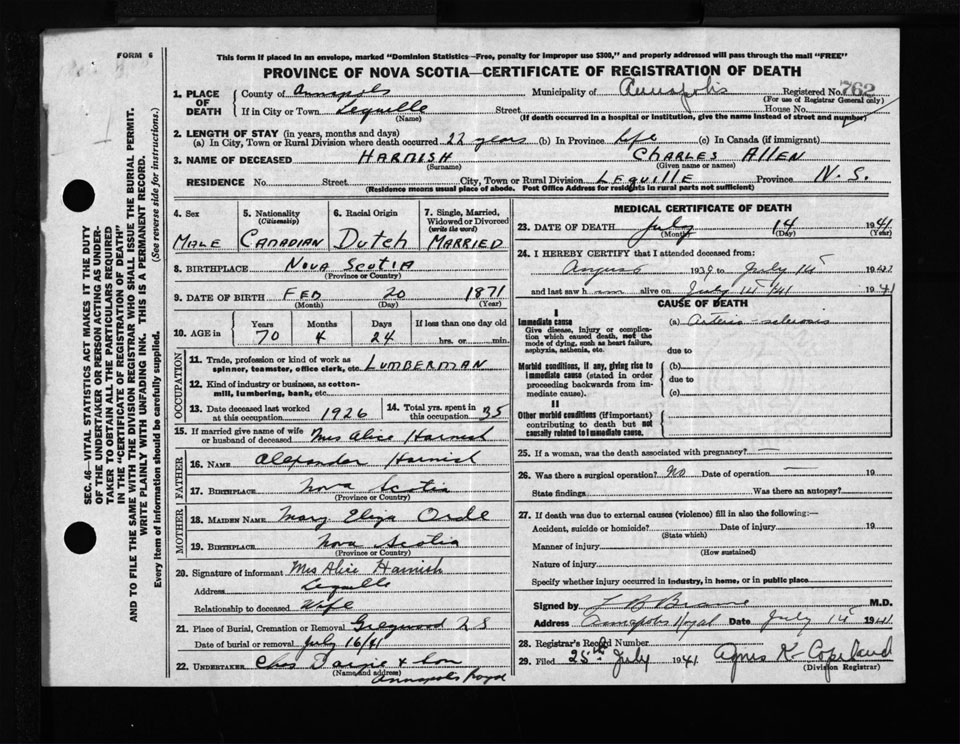 FORM 6
This form if placed in an envelope, marked "Dominion Statistics—Free, penalty for improper use $300," and properly addressed will pass through the mail "FREE"
PROVINCE OF NOVA SCOTIA—CERTIFICATE OF REGISTRATION OF DEATH
1. PLACE OF DEATH County of Annapolis Municipality of Annapolis Registered No. 762
(For use of Registrar General only)
If in City or Town Lequille Street House No.
(Name) (If death occurred in a hospital or institution, give the name instead of street and number)
2. LENGTH OF STAY (in years, months and days)
(a) In City, Town or Rural Division where death occurred 22 years (b) In Province life (c) In Canada (if immigrant)
3. NAME OF DECEASED HARNISH CHARLES ALLEN
(Surname) (Given name or names)
RESIDENCE No. Street City, Town or Rural Division LEQUILLE Province N.S.
(Residence means usual place of abode. Post Office Address for residents in rural parts not sufficient)
4. Sex MALE
5. Nationality (Citizenship) CANADIAN
6. Racial Origin Dutch
7. Single, Married, Widowed or Divorced (write the word) MARRIED
8. BIRTHPLACE NOVA SCOTIA
(Province or Country)
9. DATE OF BIRTH FEB 20 1871
(Month) (Day) (Year)
10. AGE in Years Months Days If less than one day old
70 4 24 hrs. or min.
OCCUPATION
11. Trade, profession or kind of work as spinner, teamster, office clerk, etc. LUMBERMAN
12. Kind of industry or business, as cotton-mill, lumbering, bank, etc.
13. Date deceased last worked at this occupation 1926
14. Total yrs. spent in this occupation 35
15. If married give name of wife or husband of deceased Mrs Alice Harnish
FATHER
16. NAME Alexander Harnish
17. BIRTHPLACE Nova Scotia
(Province or Country)
MOTHER
18. MAIDEN NAME Mary Eliza Orde
19. BIRTHPLACE Nova Scotia
(Province or Country)
20. Signature of informant Mrs Alice Harnish
Address Lequille
Relationship to deceased Wife
21. Place of Burial, Cremation or Removal Greywood N S
Date of burial or removal July 16/41
22. UNDERTAKER Chas Dargie & Son
(Name and address) Annapolis Royal
MEDICAL CERTIFICATE OF DEATH
23. DATE OF DEATH July 14 1941
(Month) (Day) (Year)
24. I HEREBY CERTIFY that I attended deceased from:
August 1939 to July 14 1941
and last saw h im alive on July 14 1941
CAUSE OF DEATH
I
Immediate cause (a) Arterio-sclerosis
Give disease, injury or complication which caused death, not the mode of dying, such as heart failure, asphyxia, asthenia, etc.
due to
Morbid conditions, if any, giving rise to immediate cause (stated in order proceeding backwards from immediate cause).
(b)
due to
(c)
II
Other morbid conditions (if important) contributing to death but not causally related to immediate cause.
25. If a woman, was the death associated with pregnancy? —
26. Was there a surgical operation? No Date of operation — 19
State findings Was there an autopsy?
27. If death was due to external causes (violence) fill in also the following:—
Accident, suicide or homicide? Date of injury 19
(State which)
Manner of injury
(How sustained)
Nature of injury
Specify whether injury occurred in industry, in home, or in public place
Signed by M.D.
Address Annapolis Royal Date July 14 1941
28. Registrar's Record Number
29. Filed 25th July 1941 Agnes K. Copeland
(Division Registrar)
SEC. 46—VITAL STATISTICS ACT MAKES IT THE DUTY
OF THE UNDERTAKER OR PERSON ACTING AS UNDER-
TAKER TO OBTAIN ALL THE PARTICULARS REQUIRED
IN THE "CERTIFICATE OF REGISTRATION OF DEATH"
AND TO FILE THE SAME WITH THE DIVISION REGISTRAR WHO SHALL ISSUE THE BURIAL PERMIT.
WRITE PLAINLY WITH UNFADING INK. THIS IS A PERMANENT RECORD.
Every item of Information should be carefully supplied. (See reverse side for instructions.)